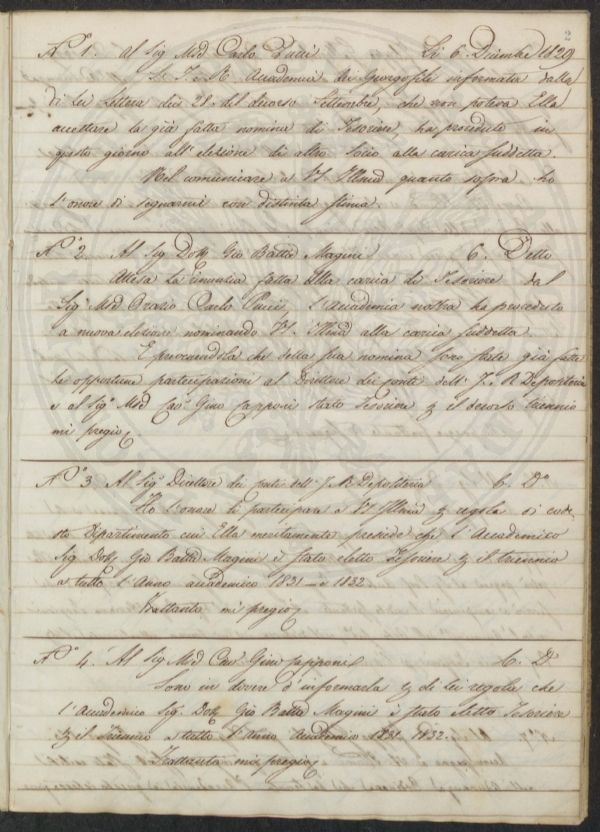 2
N.° 1. Al Sig. Mse Carlo Pucci Li 6. Dicembre 1829
La I. e R. Accademia dei Georgofili informata dalla
di Lei Lettera dei 28. del decorso Settembre, che non poteva Ella
accettare la già fatta nomina di Tesoriere, ha proceduto in
questo giorno all'elezione di altro Socio alla carica suddetta.
Nel comunicare a VS. Illma quanto sopra ho
l'onore di segnarmi con distinta stima.
N.° 2 Al Sig. Dott. Gio Batta Magini 6. Detto
Attesa la renunzia fatta alla carica di Tesoriere dal
Sig.e Mse Orazio Carlo Pucci, l'Accademia nostra ha proceduto
a nuova elezione nominando VS. Illma alla carica suddetta.
E prevenendola che della sua nomina sono state già fatte
le opportune partecipazioni al Direttore dei conti dell'I. R. Depositeria
e al Sig.e Mse Cav.e Gino Capponi stato Tesoriere il decorso triennio
mi pregio
N.° 3 Al Sig.e Direttore dei conti dell'I. R. Depositeria 6. D.°
Ho l'onore di partecipare a VS. Illma regola di code-
sto Dipartimento cui Ella meritamente presiede che l'Accademico
Sig. Dott. Gio Batta Magini è stato eletto Tesoriere il triennio
a tutto l'Anno accademico 1831 e 1832.
Frattanto mi pregio
N.° 4. Al Sig. Mse Cav.e Gino Capponi 6. D.°
Sono in dovere d'informarla di lei regola che
l'Accademico Sig. Dott. Gio Batta Magini è stato eletto Tesoriere
il Triennio a tutto l'Anno accademico 1831. 1832.
Frattanto mi pregio